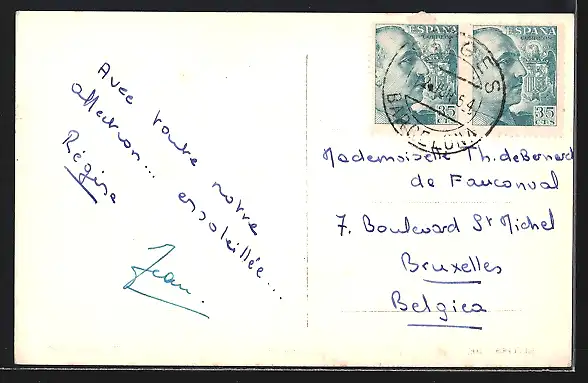 Avec toute notre
affection... ensoleillée...
Régine
Jean.
ESPAÑA
CORREOS
35
CTS
ESPAÑA
CORREOS
35
CTS
SITGES
BARCELONA
Mademoiselle Th. de Bernard
de Fauconval
7. Boulevard St Michel
Bruxelles
Belgica